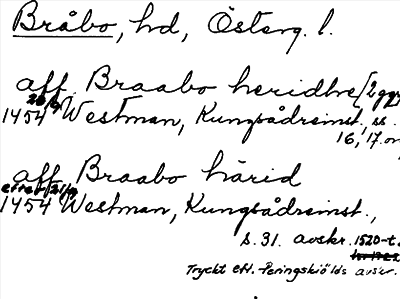 Bråbo, hd, Österg. l.
aff Braabo heridhe [2 ggr
26/9
1454 Westman, Kungsådreinst., ss.
16, 17. om
aff Braabo härid
efter 21/9
1454 Westman, Kungsådreinst.,
s. 31. avskr. 1520-t.
Tryckt eft. Peringskiölds avskr.